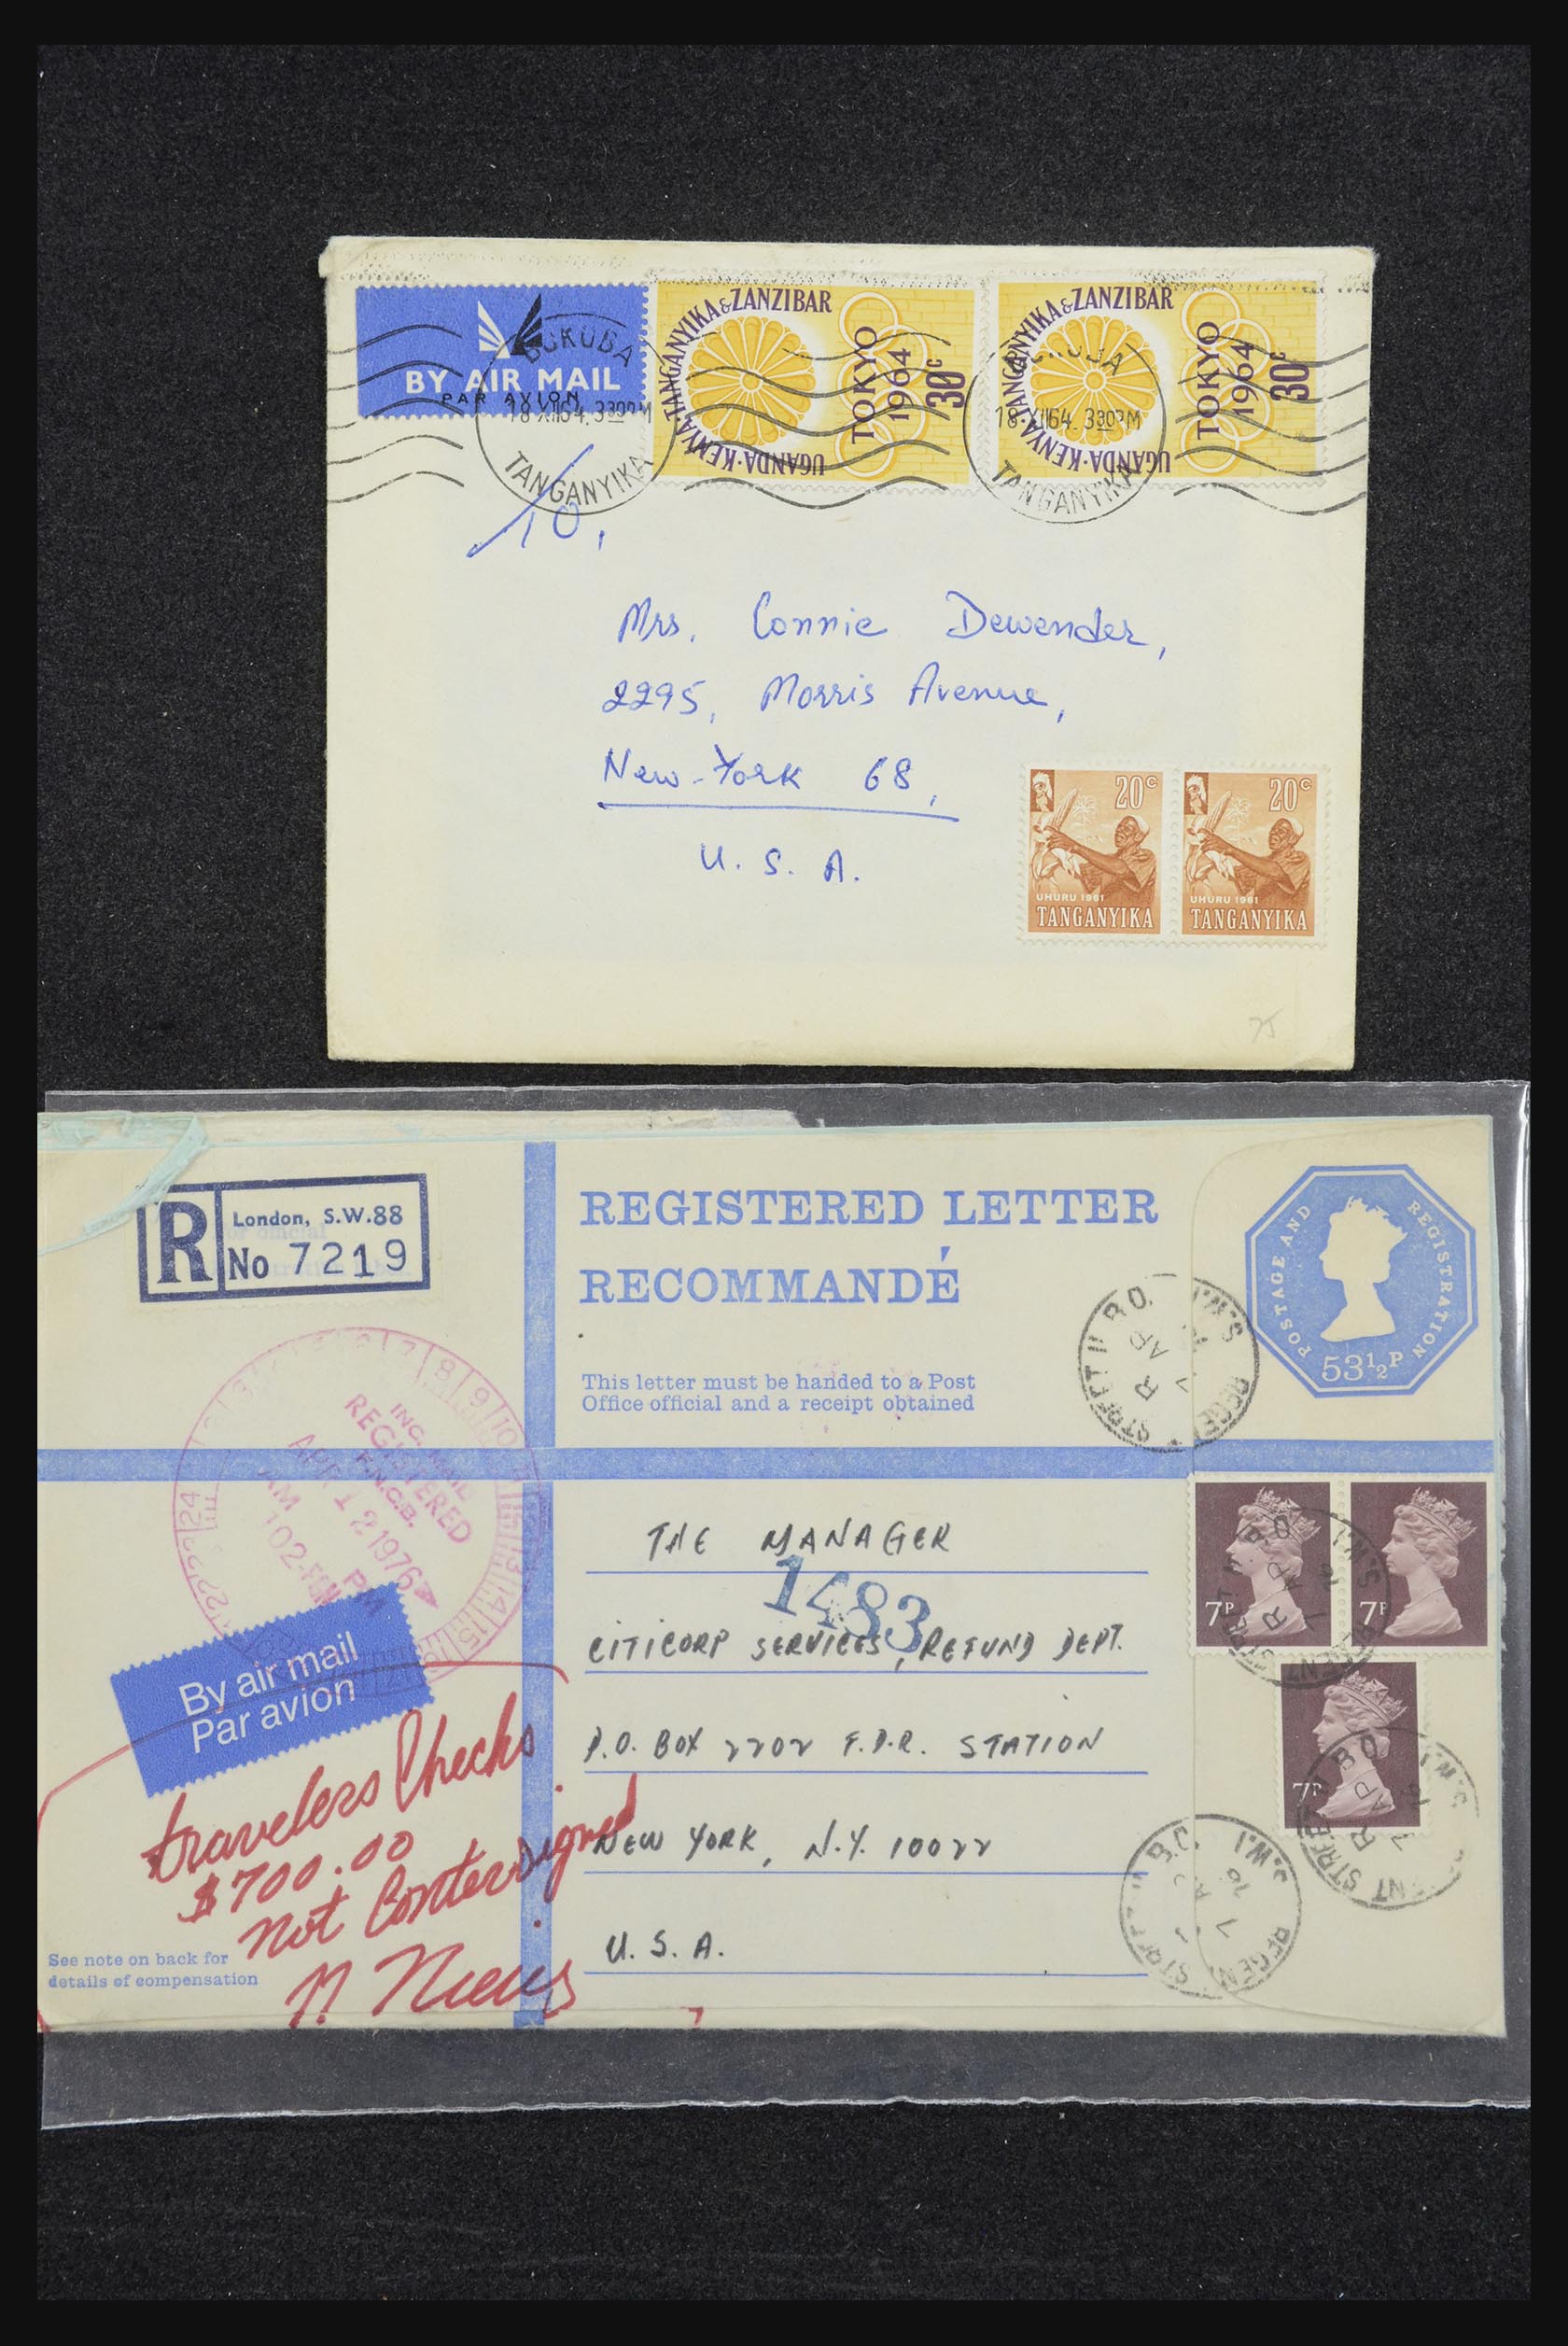 BY AIR MAIL
PAR AVION
BUKOBA
18 XII 64. 3 30 PM
TANGANYIKA
UGANDA·KENYA·TANGANYIKA & ZANZIBAR
TOKYO
1964
30c
UGANDA·KENYA·TANGANYIKA & ZANZIBAR
TOKYO
1964
30c
18 XII 64. 3 30 PM
TANGANYIKA
To,
Mrs. Connie Dewender,
2295, Morris Avenue,
New-York 68,
U. S. A.
20c
UHURU 1961
TANGANYIKA
20c
UHURU 1961
TANGANYIKA
75
R
London, S.W.88
No 7219
REGISTERED LETTER
RECOMMANDÉ
This letter must be handed to a Post
Office official and a receipt obtained
POSTAGE AND REGISTRATION
53½P
INC. MAIL
REGISTERED
F.N.C.B.
APR 12 1976
AM PM
By air mail
Par avion
THE MANAGER
1483
CITICORP SERVICES, REFUND DEPT.
P.O. BOX 2202 F.D.R. STATION
NEW YORK, N.Y. 10022
U. S. A.
7P
7P
7P
travelers Checks
$700.00
not Contersigned
See note on back for
details of compensation